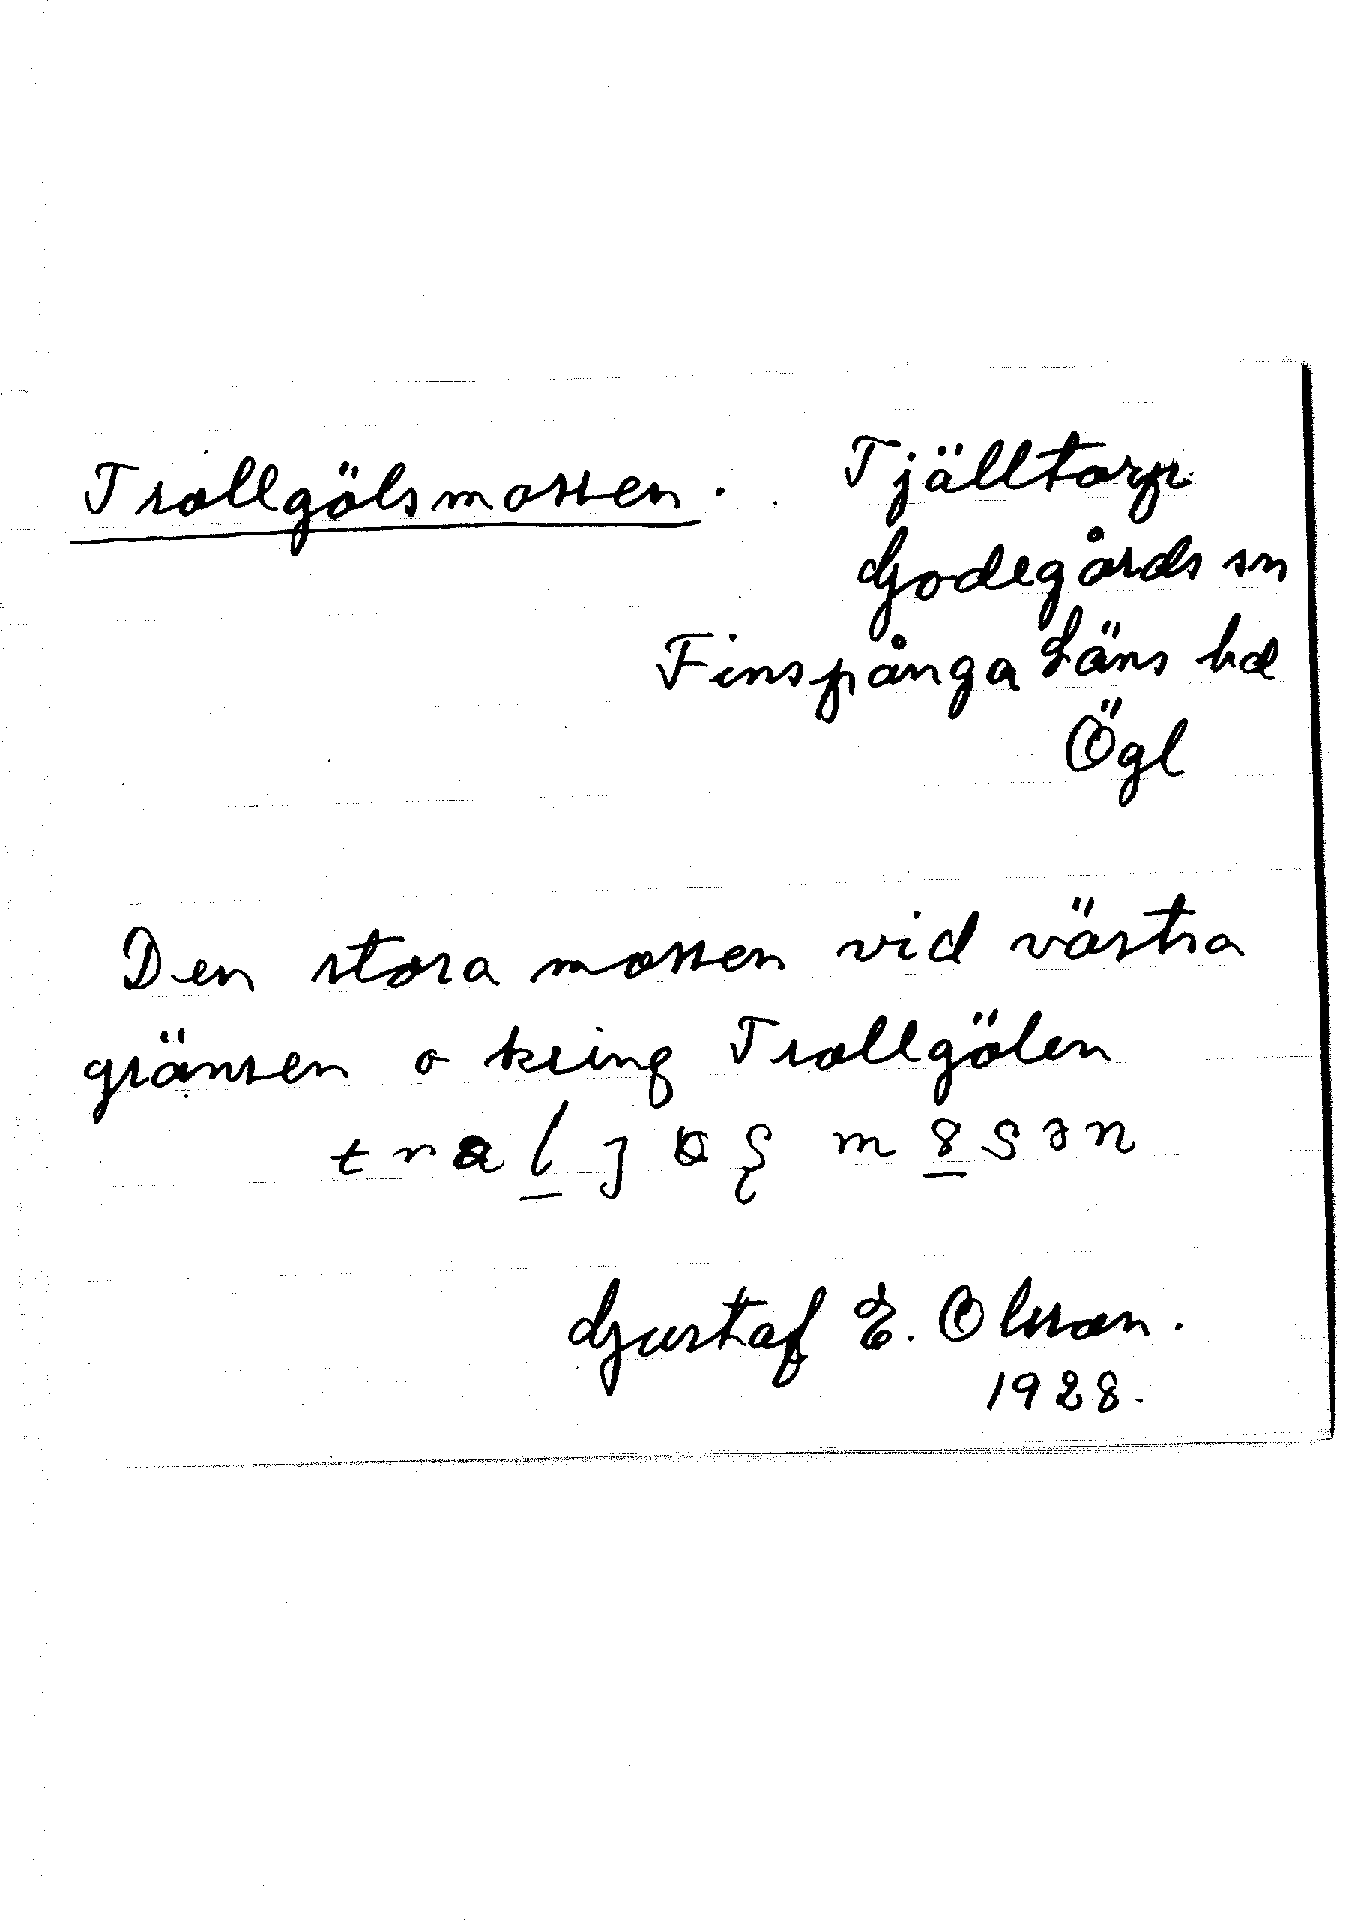 Trollgölsmossen. Tjälltorp
Godegårds sn
Finspånga Läns hd
Ögl
Den stora mossen vid västra
gränsen o kring Trollgölen
Gustaf E. Olsson.
1928.